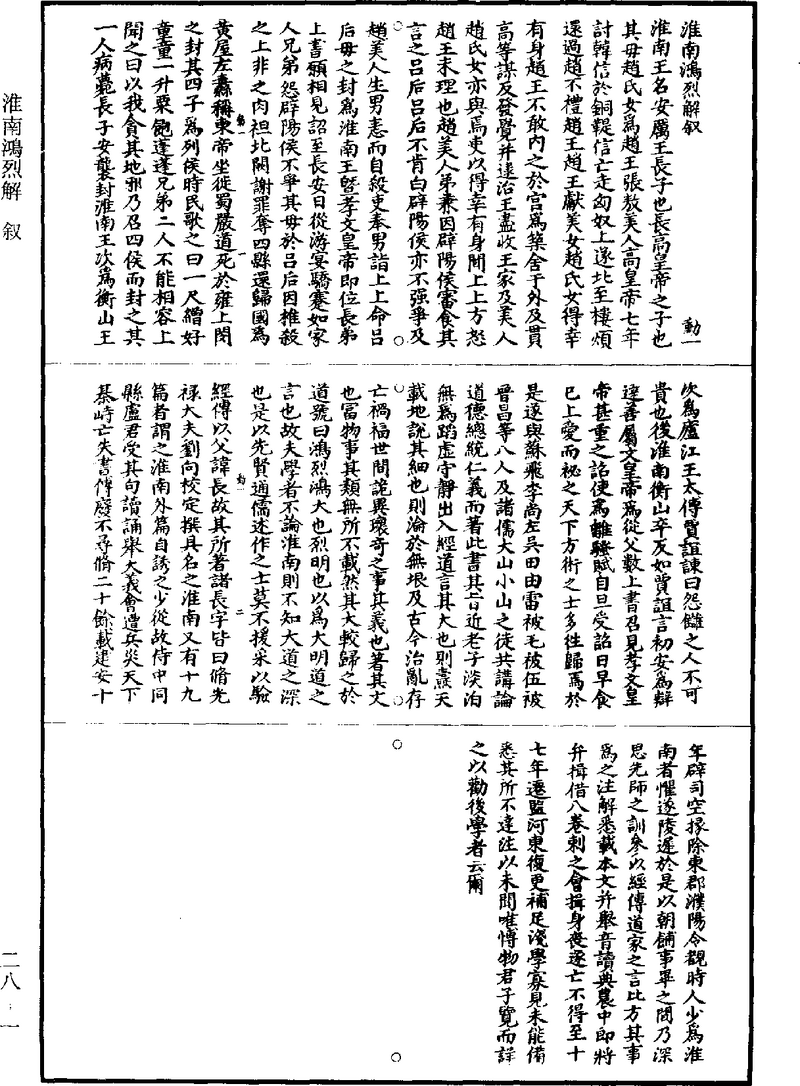 淮南鴻烈解 叙
二八-一
淮南鴻烈解叙
動一
淮南王名安厲王長子也長高皇帝之子也
其毋趙氏女爲趙王張敖美人高皇帝七年
討韓信於銅鞮信亡走匈奴上遂北至樓煩
還過趙不禮趙王趙王獻美女趙氏女得幸
有身趙王不敢内之於宫爲築舍于外及貫
高等謀反發覺并逮治王盡收王家及美人
趙氏女亦與焉吏以得幸有身聞上上方怒
趙王未理也趙美人弟兼因辟陽侯審食其
言之吕后吕后不肯白辟陽侯亦不强爭及
趙美人生男恚而自殺吏奉男詣上上命吕
后毋之封爲淮南王暨孝文皇帝即位長弟
上書願相見詔至長安日從游宴驕蹇如家
人兄弟怨辟陽侯不爭其毋於吕后因椎殺
之上非之肉袒北闕謝罪奪四縣還歸國爲
黄屋左纛稱東帝坐徙蜀嚴道死於雍上閔
之封其四子爲列侯時民歌之曰一尺繒好
童童一升粟飽蓬蓬兄弟二人不能相容上
聞之曰以我貪其地邪乃召四侯而封之其
一人病薨長子安襲封淮南王次爲衡山王
次爲廬江王太傅賈誼諫曰怨讎之人不可
貴也後淮南衡山卒反如賈誼言初安爲辯
達善屬文皇帝爲從父數上書召見孝文皇
帝甚重之詔使爲離騷賦自旦受詔日早食
已上愛而祕之天下方術之士多徃歸焉於
是遂與蘇飛李尚左吴田由雷被毛被伍被
晉昌等八人及諸儒大山小山之徒共講論
道德總統仁義而著此書其旨近老子淡泊
無爲蹈虚守靜出入經道言其大也則燾天
載地說其細也則淪於無垠及古今治亂存
亡禍福世間詭異瓌奇之事其義也著其文
也富物事其類無所不載然其大較歸之於
道號曰鴻烈鴻大也烈明也以爲大明道之
言也故夫學者不論淮南則不知大道之深
也是以先賢通儒述作之士莫不援采以驗
經傳以父諱長故其所著諸長字皆曰脩先
禄大夫劉向校定撰具名之淮南又有十九
篇者謂之淮南外篇自誘之少從故侍中同
縣盧君受其句讀誦舉大義會遭兵災天下
棊峙亡失書傳廢不尋脩二十餘載建安十
年辟司空掾除東郡濮陽令覩時人少爲淮
南者懼遂陵遲於是以朝餔事畢之間乃深
思先師之訓參以經傳道家之言比方其事
爲之注解悉載本文并舉音讀典農中郎將
弁揖借八卷刺之會揖身喪遂亡不得至十
七年遷監河東復更補足淺學寡見未能備
悉其所不達注以未聞唯博物君子覽而詳
之以勸後學者云爾